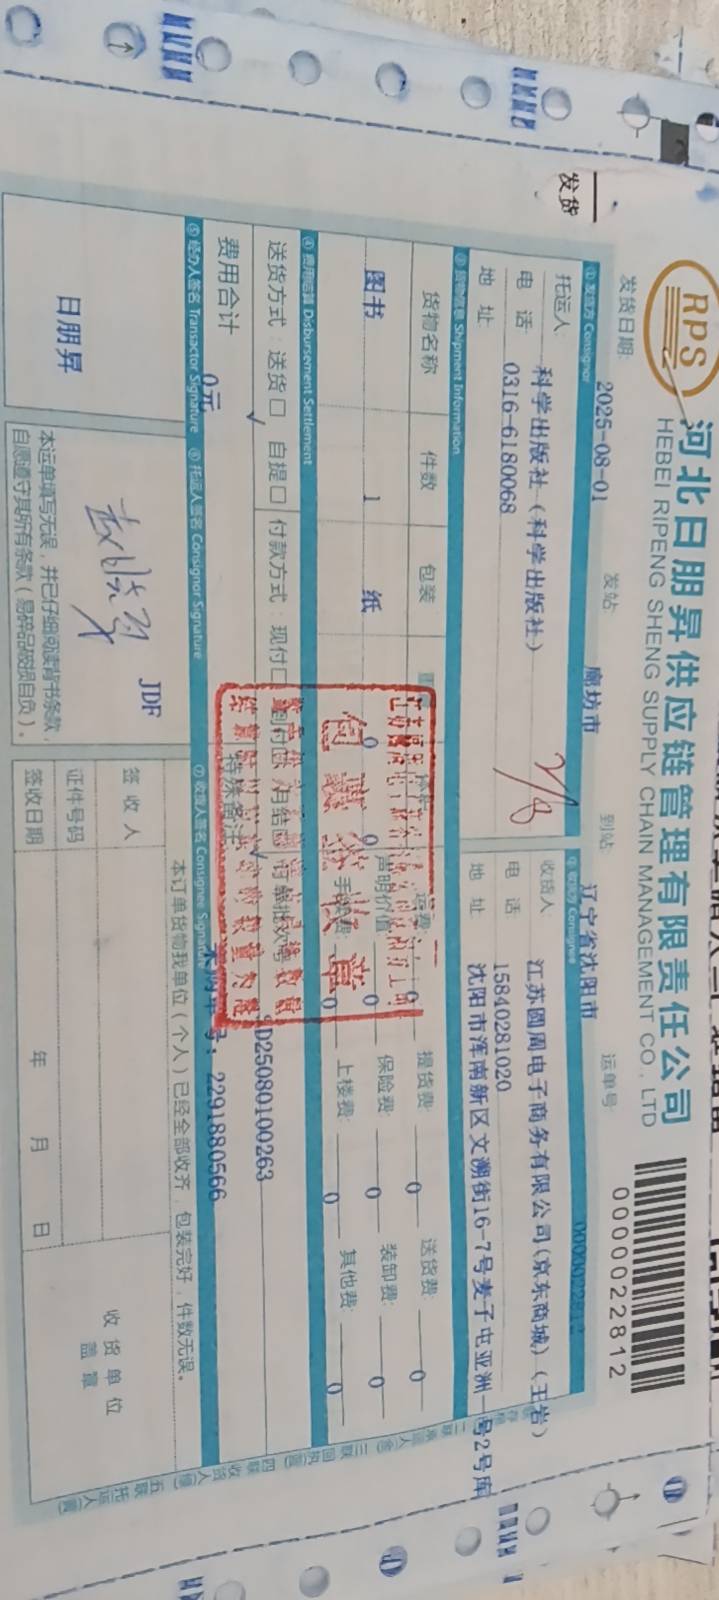 发货
RPS
河北日朋昇供应链管理有限责任公司
HEBEI RIPENG SHENG SUPPLY CHAIN MANAGEMENT CO., LTD
0000022812
发货日期: 2025-08-01 发站: 廊坊市 到站: 辽宁省沈阳市 运单号: 0000022812
① 发货方 Consignor
托运人: 科学出版社（科学出版社）
电 话 0316-6180068
地 址
收货人: 江苏圆周电子商务有限公司(京东商城)（王岩）
电 话 15840281020
地 址 沈阳市浑南新区文溯街16-7号麦子屯亚洲一号2号库
③ 货物信息 Shipment Information
货物名称 件数 包装
图书 1 纸 0 0
声明价值 0
提货费: 0 送货费: 0
保险费: 0 装卸费: 0
手续费: 0 上楼费: 0 其他费: 0
④ 费用结算 Disbursement Settlement
送货方式: 送货□ 自提□ 付款方式: 现付□
D25080100263
费用合计 0元
特殊备注
: 2291880566
⑤ 经办人签名 Transactor Signature ⑥ 托运人签名 Consignor Signature ⑦ 收货人签名 Consignee Signature
日朋昇
JDF
本运单填写无误，并已仔细阅读背书条款，
自愿遵守其所有条款（易碎品破损自负）。
本订单货物我单位（个人）已经全部收齐，包装完好，件数无误。
签收人
证件号码
签收日期 年 月 日
收货单位
盖章